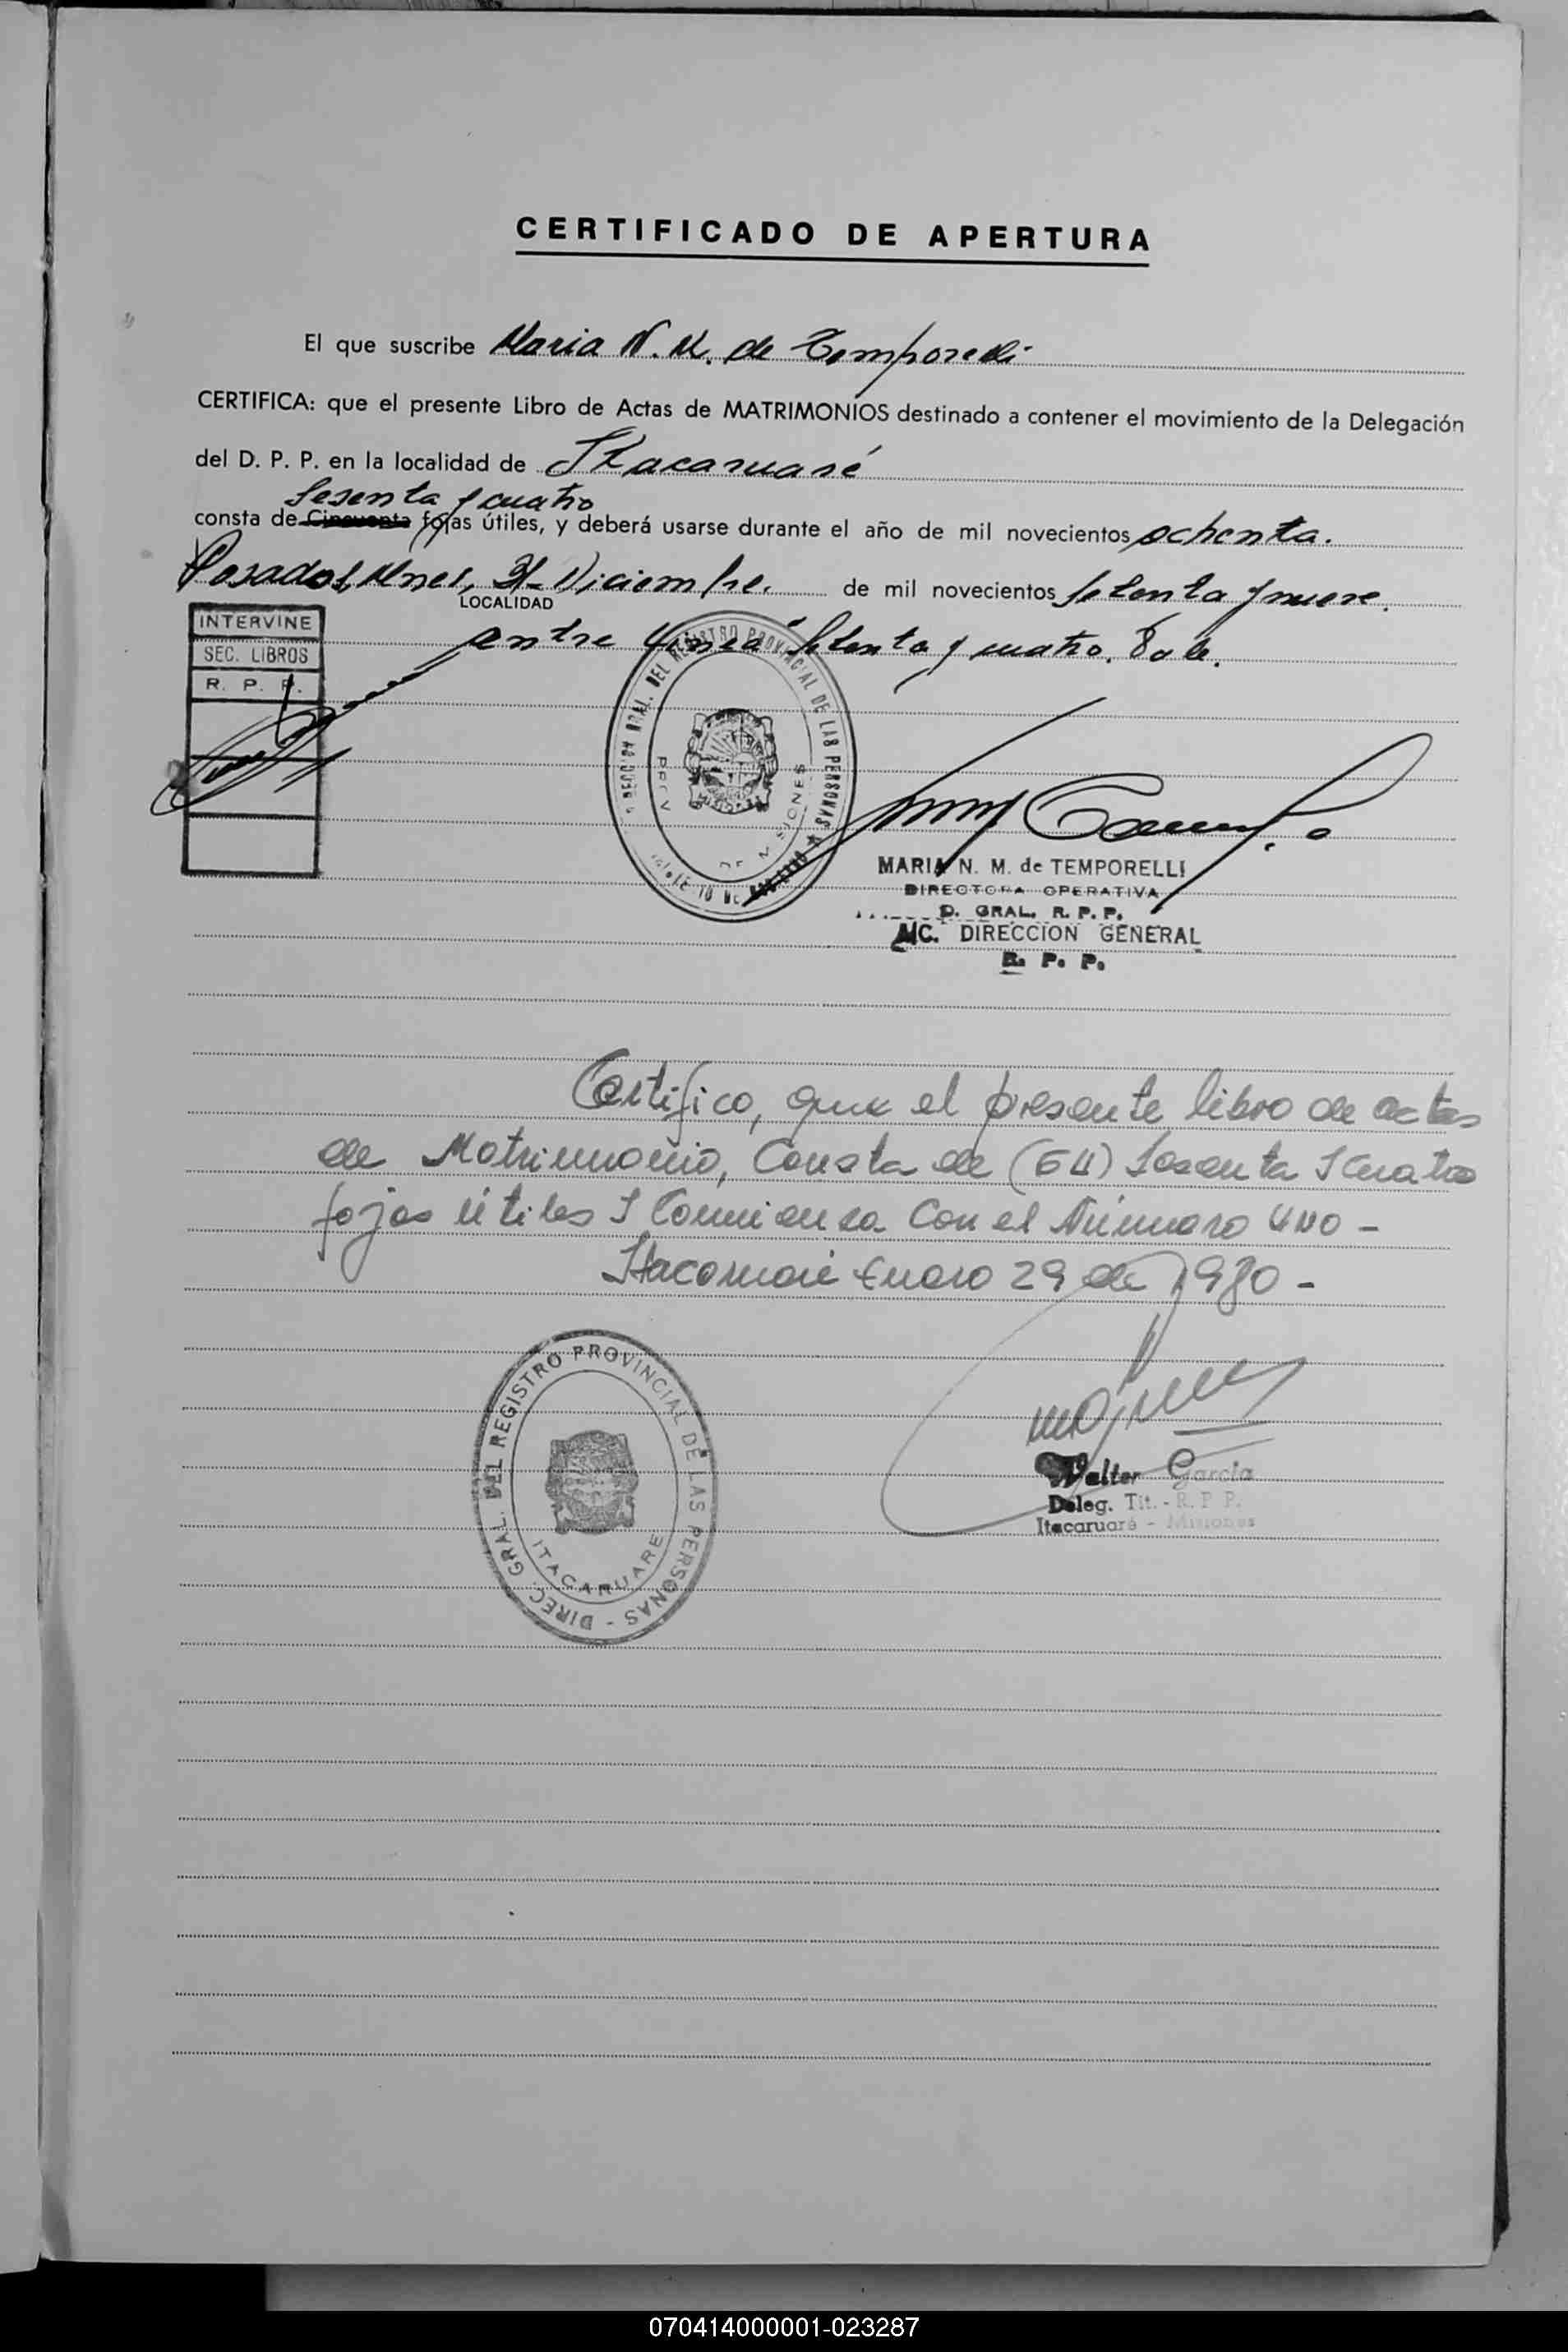 CERTIFICADO DE APERTURA
El que suscribe Maria N. M. de Temporelli
CERTIFICA: que el presente Libro de Actas de MATRIMONIOS destinado a contener el movimiento de la Delegación
del D. P. P. en la localidad de Itacaruaré
Sesenta y cuatro
consta de Cincuenta fojas útiles, y deberá usarse durante el año de mil novecientos ochenta.
Posadas, Mnes, 31 Diciembre. de mil novecientos setenta y nueve.
LOCALIDAD
INTERVINE
entre línea "Setenta y cuatro. Vale.
SEC. LIBROS
R. P. P.
DIRECCION GRAL. DEL REGISTRO PROVINCIAL DE LAS PERSONAS
PROV. DE MISIONES
MARIA N. M. de TEMPORELLI
DIRECTORA OPERATIVA
D. GRAL. R. P. P.
A/C. DIRECCION GENERAL
R. P. P.
Certifico, que el presente libro de actas
de Matrimonio, Consta de (64) Sesenta y Cuatro
fojas útiles y Comienza Con el Número uno -
Itacaruaré Enero 29 de 1980 -
DIREC. GRAL. DEL REGISTRO PROVINCIAL DE LAS PERSONAS -
ITACARUARE
Walter Garcia
Deleg. Tit. - R. P. P.
Itacaruaré - Misiones
070414000001-023287